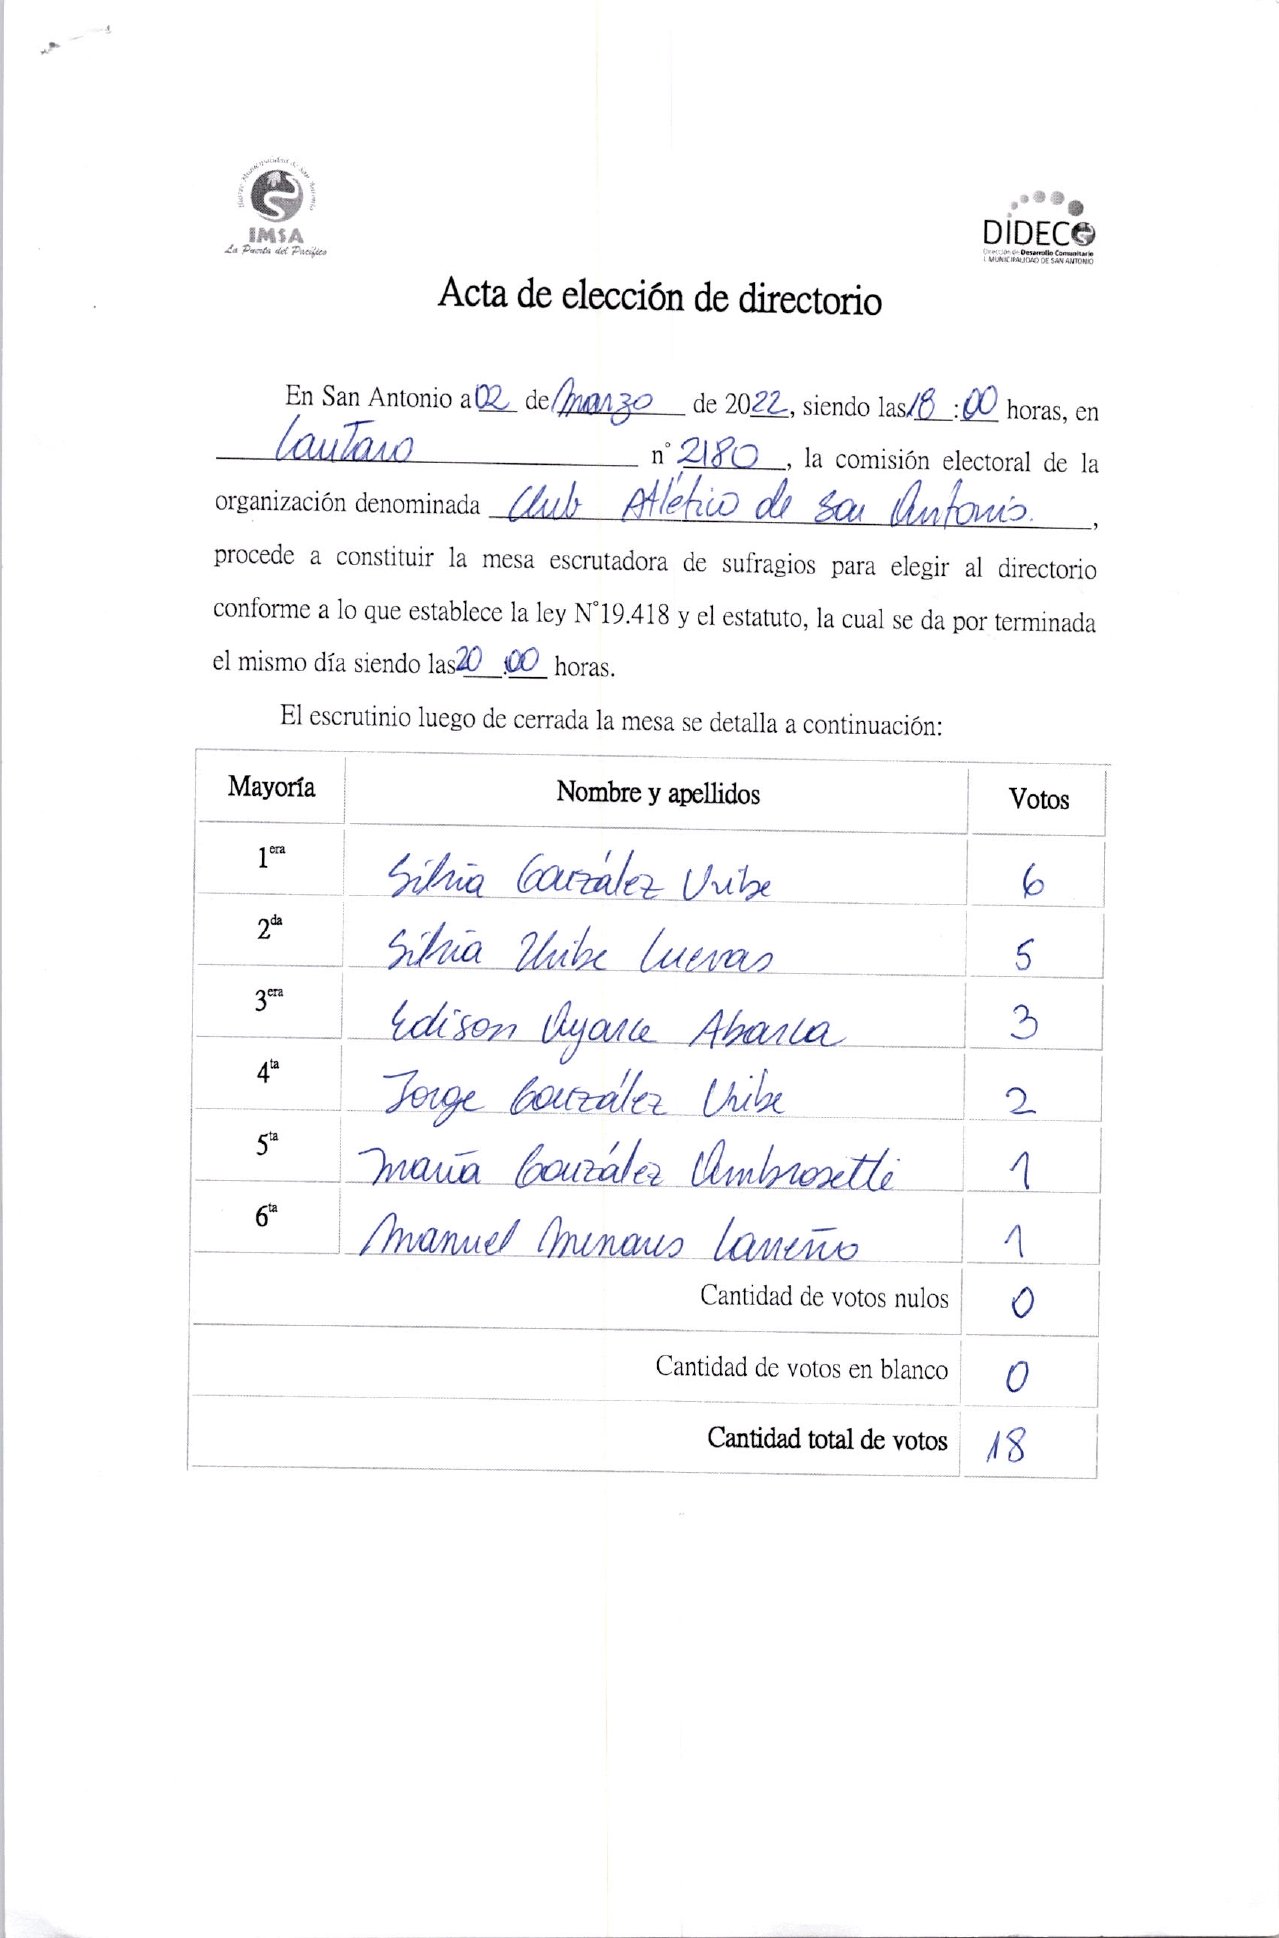 Ilustre Municipalidad de San Antonio
IMSA
La Puerta del Pacífico
DIDECO
Dirección de Desarrollo Comunitario
I. MUNICIPALIDAD DE SAN ANTONIO
Acta de elección de directorio
En San Antonio a 02 de Marzo de 2022, siendo las 18:00 horas, en
Lautaro n° 2180, la comisión electoral de la
organización denominada Club Atlético de San Antonio.,
procede a constituir la mesa escrutadora de sufragios para elegir al directorio
conforme a lo que establece la ley N°19.418 y el estatuto, la cual se da por terminada
el mismo día siendo las 20:00 horas.
El escrutinio luego de cerrada la mesa se detalla a continuación:
Mayoría Nombre y apellidos Votos
1era Silvia González Uribe 6
2da Silvia Uribe Cuevas 5
3era Edison Oyarce Abarca 3
4ta Jorge González Uribe 2
5ta María González Ambrosetti 1
6ta Manuel Carreño 1
Cantidad de votos nulos 0
Cantidad de votos en blanco 0
Cantidad total de votos 18